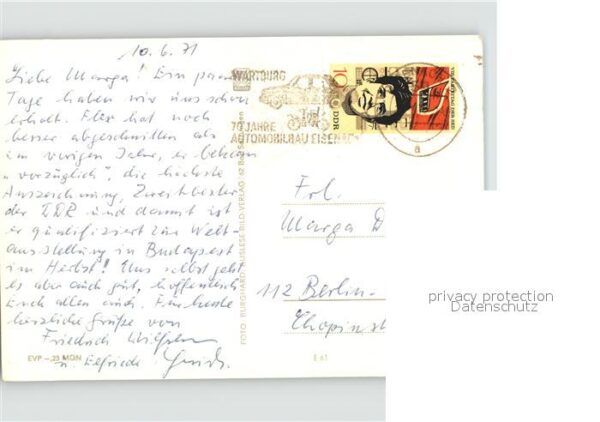 10.6.71
Liebe Marga! Ein paar
Tage haben wir uns schon
erholt. Elfr hat noch
besser abgeschnitten als
im vorigen Jahre, er bekam
"vorzüglich", die höchste
Auszeichnung, Zweitbester
der DDR und damit ist
er qualifiziert zur Welt-
ausstellung in Budapest
im Herbst! Uns selbst geht
es aber auch gut, hoffentlich
Euch allen auch. Für heute
herzliche Grüße von
Friedrich Wilhelm
u. Elfriede
EVP –.23 MDN
FOTO: BURGHARD AUSLESE-BILD-VERLAG
E 61
WARTBURG
70 JAHRE
AUTOMOBILBAU EISENACH
10
DDR
a
Frl.
Marga D
112 Berlin-
Chopinst
privacy protection
Datenschutz